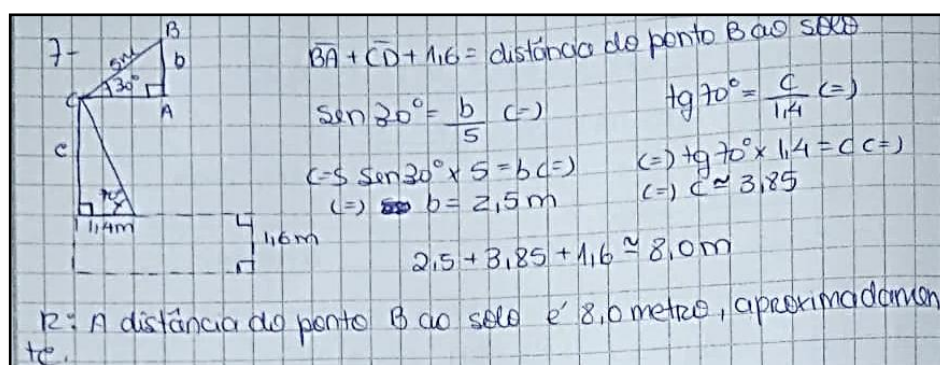 7-
B
5m
b
30°
C
A
c
70°
1,4m
1,6m
B̅A̅ + C̅D̅ + 1,6 = distância do ponto B ao solo
sen 30° = b/5 (=)
(=) sen 30° x 5 = b (=)
(=) b = 2,5m
tg 70° = c/1,4 (=)
(=) tg 70° x 1,4 = c (=)
(=) c ≃ 3,85
2,5 + 3,85 + 1,6 ≃ 8,0m
R: A distância do ponto B ao solo é 8,0 metro, aproximadamen
te.